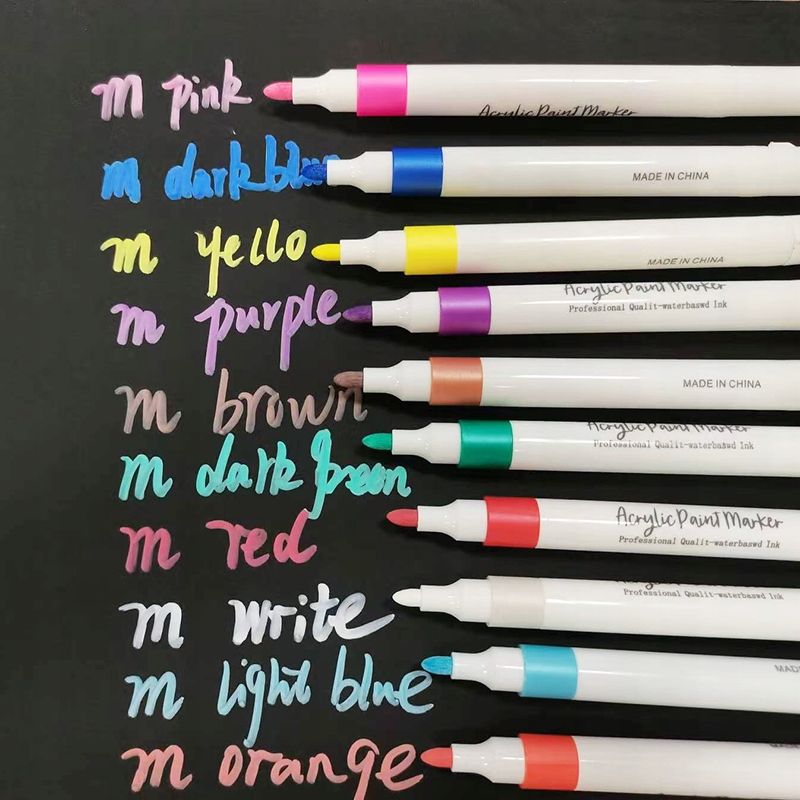 m pink
Acrylic Paint Marker
m dark blue
MADE IN CHINA
m yello
MADE IN CHINA
Acrylic Paint Marker
m purple
Professional Qualit-waterbaswd Ink
m brown
MADE IN CHINA
Acrylic Paint Marker
m dark green
Professional Qualit-waterbaswd Ink
m red
Acrylic Paint Marker
Professional Qualit-waterbaswd Ink
Acrylic Paint Marker
Professional Qualit-waterbaswd Ink
m write
m light blue
MAD
m orange